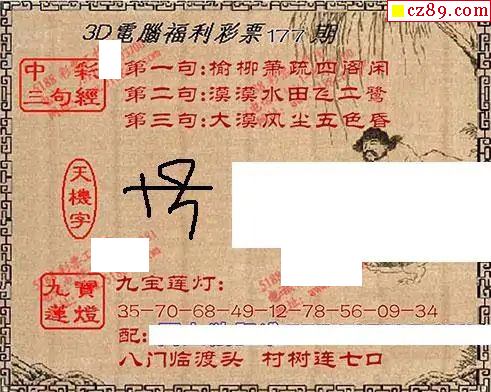 cz89.com
3D電腦福利彩票177期
中彩
三句經
第一句:榆柳萧疏四阁闲
第二句:漠漠水田飞二鹭
第三句:大漠风尘五色昏
天機字
九寶
蓮燈
九宝莲灯:
35-70-68-49-12-78-56-09-34
配:
八门临渡头 村树连七口